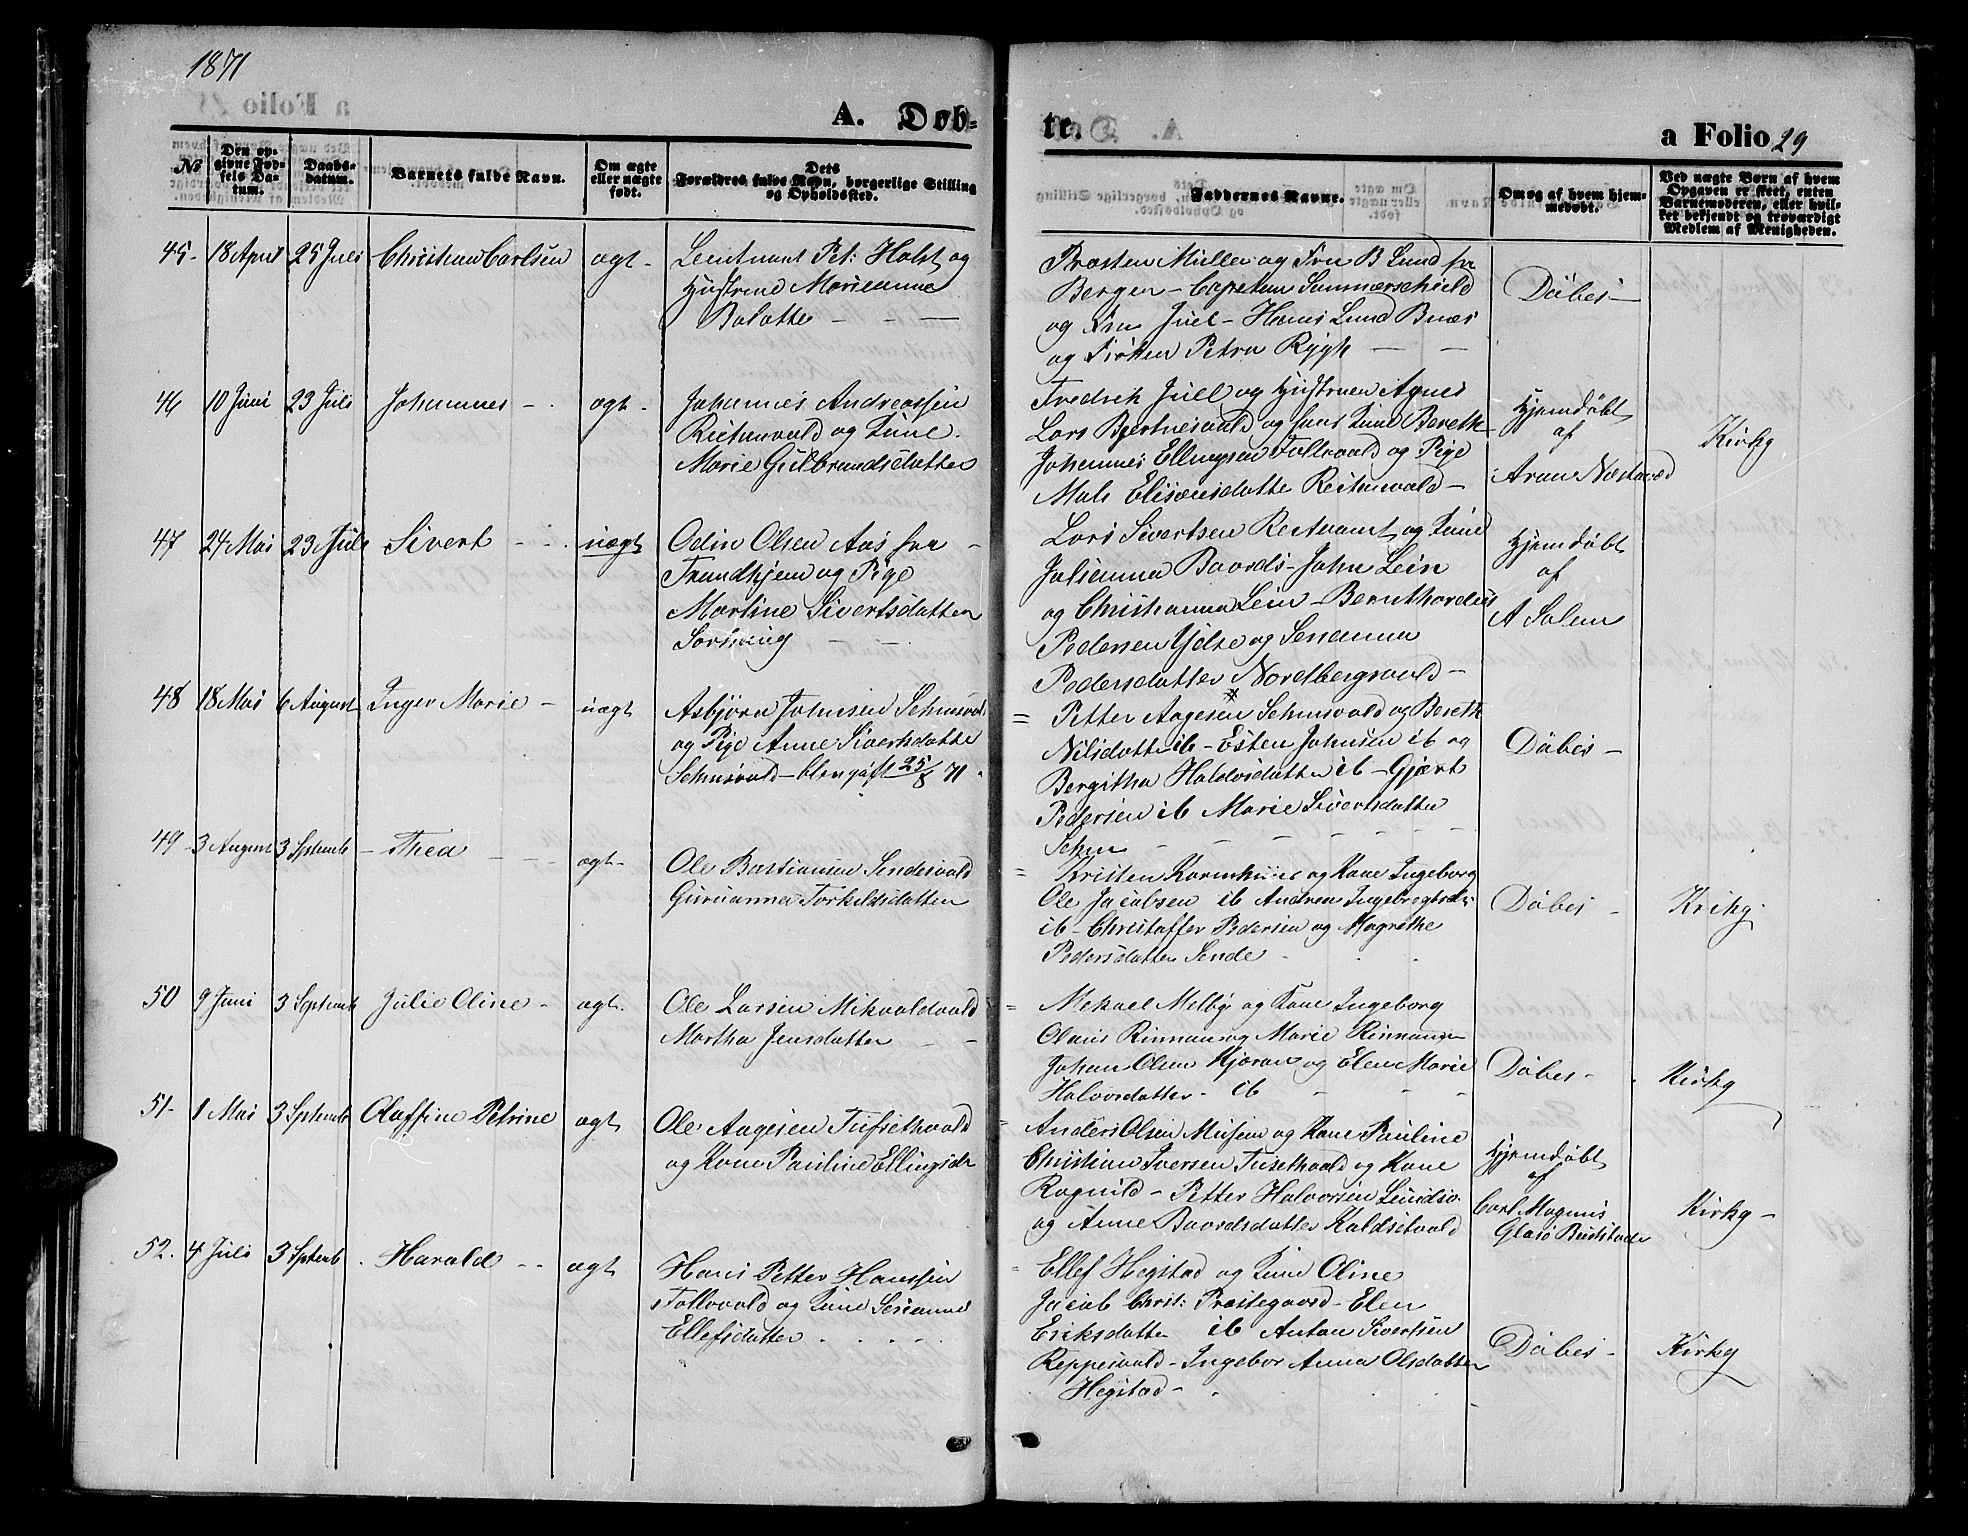 1871
A. Døb-
te.
a Folio 29
No
Den op-
givne Fød-
sels Da-
tum.
Daabs-
datum.
Barnets fulde Navn.
Om ægte
eller uægte
født.
Dets
Forældres fulde Navn, borgerlige Stilling
og Opholdssted.
Faddernes Navne.
Om og af hvem hjem-
medøbt.
Ved uægte Børn af hvem
Opgaven er skeet, enten
Barnemoderen, eller hvil-
ket bekjendt og troværdigt
Medlem af Menigheden.
45- 18 April 25 Juli Christian Carlsen ægt-
Leutnant Pet: Holst og
Hustrue Marieanne
Prosten Müller og Fru B Lund fra
Bergen - Capetain
og Fru Juel - Hans Lund
og Frøken Petra Rygh
Døbes-
46 10 Juni 23 Juli Johannes - ægt-
Johannes Andreassen
og Kone
Marie Gulbrandsdatter
Fredrik Juel og Hustruen Agnes
Lars og hans Kone Bereth
Johannes Ellingsen Follovald og Pige
Datte Reitanvald-
Hjemdøbt
af
Kirkg
47 24 Mai 23 Juli Sivert - uægt
Odin Olsen Aas fra
Trundhjem og Pige
Martine Sivertsdatter
Lars Sivertsen og Kone
Julianna Baards- John Lein
og Christianna Lein - Bernt
Pedersen og
Pedersdatter Nordbergsvald-
Hjemdøbt
af
A Salem
48 18 Mai 6 August Inger Marie - uægt
Asbjørn Johnsen
og Pige Anne Sivertsdatte
- blev gift 25/8 71.
= Petter Aagesen og Bereth
Nilsdatter ib - Esten Johnsen ib og
Bergitha Haldosdatter ib - Gjært
Pedersen ib Marie Sivertsdatter
Døbes-
49 - 3 August 3 Septemb - Thea - ægt-
Ole Bastiansen Sendesvald
Guruanna Torkildsdatter
= Kristen og Kone Ingeborg
Ole Jacobsen ib Andrea Ingebregtsdr
ib - Christoffer Pedersen og Magrethe
Pedersdatter Sende
Døbes - Kirkg
50 9 Juni 3 Septemb Julie Oline - ægt.
Ole Larsen
Martha Jensdatter
= Mekael Melby og Kone Ingeborg
Olaus Rinnan og Marie Rinnan
Johan Olsen Kjæran og Elen Marie
Halvorsdatter - ib
Døbes- Kirkg
51- 1 Mai 3 Septemb Olaffine Petrine ægt
Ole Aagesen
og Kone Pauline Ellingsdr
= Anders Olsen og Kone Pauline
Christian Iversen og Kone
Ragnild - Petter Halvorsen
og Anne Baardsdatter
Hjemdøbt
af
Carl Magnus
Kirkg-
52. 4 Juli 3 Septemb. Harald - ægt
Hans Petter Hanssen
Follovald og Kone Serianna
Ellefsdatter
Ellef Hegstad og Kone Oline
Jacob Christ: Præstegaard - Elen
Eriksdatte ib Anton Sivertsen
Reppesvald - Ingebor Anna Olsdatter
Hegstad-
Døbes- Kirkg